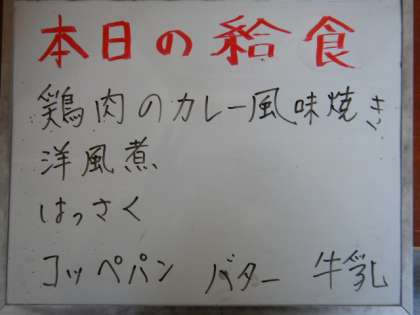 本日の給食
鶏肉のカレー風味焼き
洋風煮
はっさく
コッペパン バター 牛乳